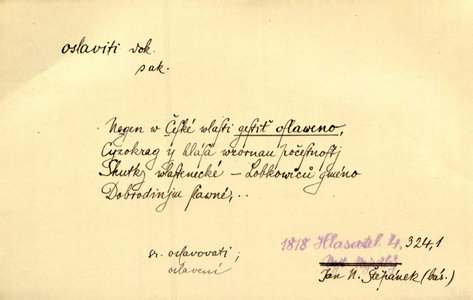 oslaviti dok.
s ak.
Negen w České wlasti gestiť oslaweno,
Cyzokrag y hlásá wzornau počestnostj
Skutky wlastenecké – Lobkowiců gméno
Dobrodinjm slawné,..
sr. oslavovati;
oslavení
1818 Hlasatel 4. 324,1
Jan N. Štěpánek (bás.)